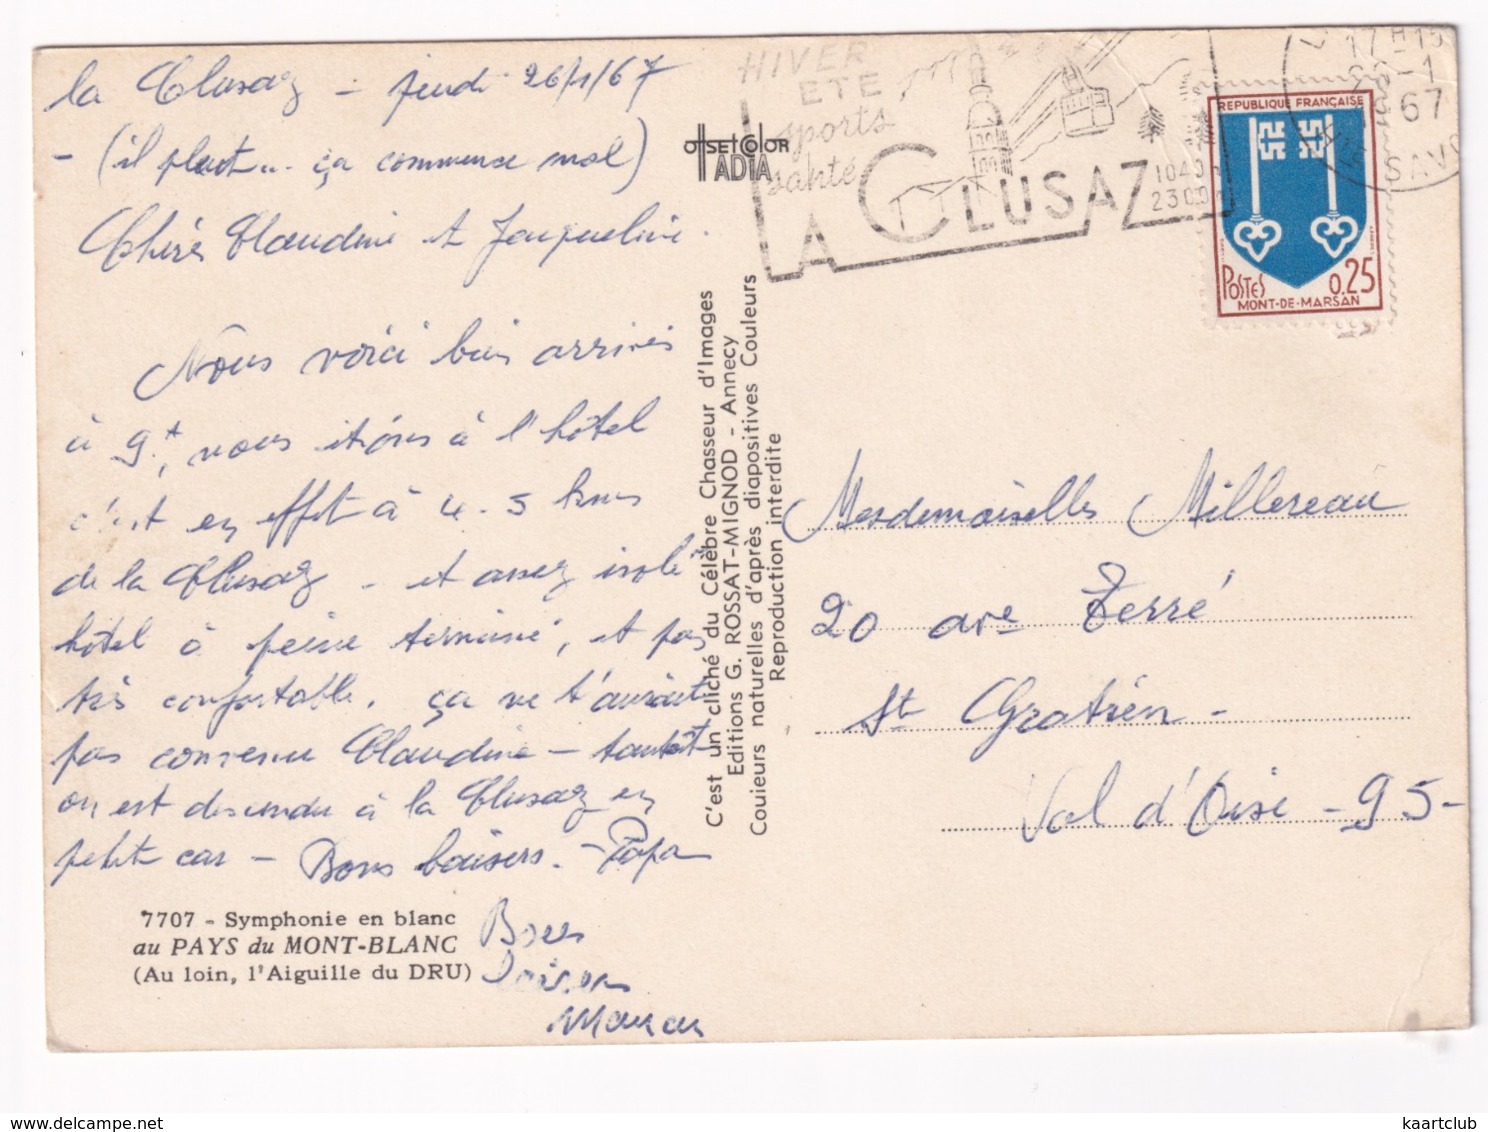 la Clusaz - jeudi 26/1/67
- (il pleut... ça commence mal)
Chères Claudine et Jacqueline.
Nous voici bien arrivés
à 9h, nous étions à l'hôtel
c'est en effet à 4-5 kms
de la Clusaz - et assez isolé
hôtel à peine terminé, et pas
très confortable. ça ne t'aurait
pas convenu Claudine - tantôt
on est descendu à la Clusaz en
petit car - Bons baisers. - Papa
Bons
baisers
Maman
7707 - Symphonie en blanc
au PAYS du MONT-BLANC
(Au loin, l'Aiguille du DRU)
OFFSET COLOR
IADIA
C'est un cliché du Célèbre Chasseur d'Images
Editions G. ROSSAT-MIGNOD - Annecy
Couieurs naturelles d'après diapositives Couleurs
Reproduction interdite
HIVER
ETE
sports
santé
LA CLUSAZ
1040 m
2300 m
17H15
-1
67
SAVOIE
REPUBLIQUE FRANÇAISE
POSTES 0.25
MONT-DE-MARSAN
Mesdemoiselles Millereau
20 ave Terré
St Gratien -
Val d'Oise - 95 -
www.delcampe.net
kaartclub